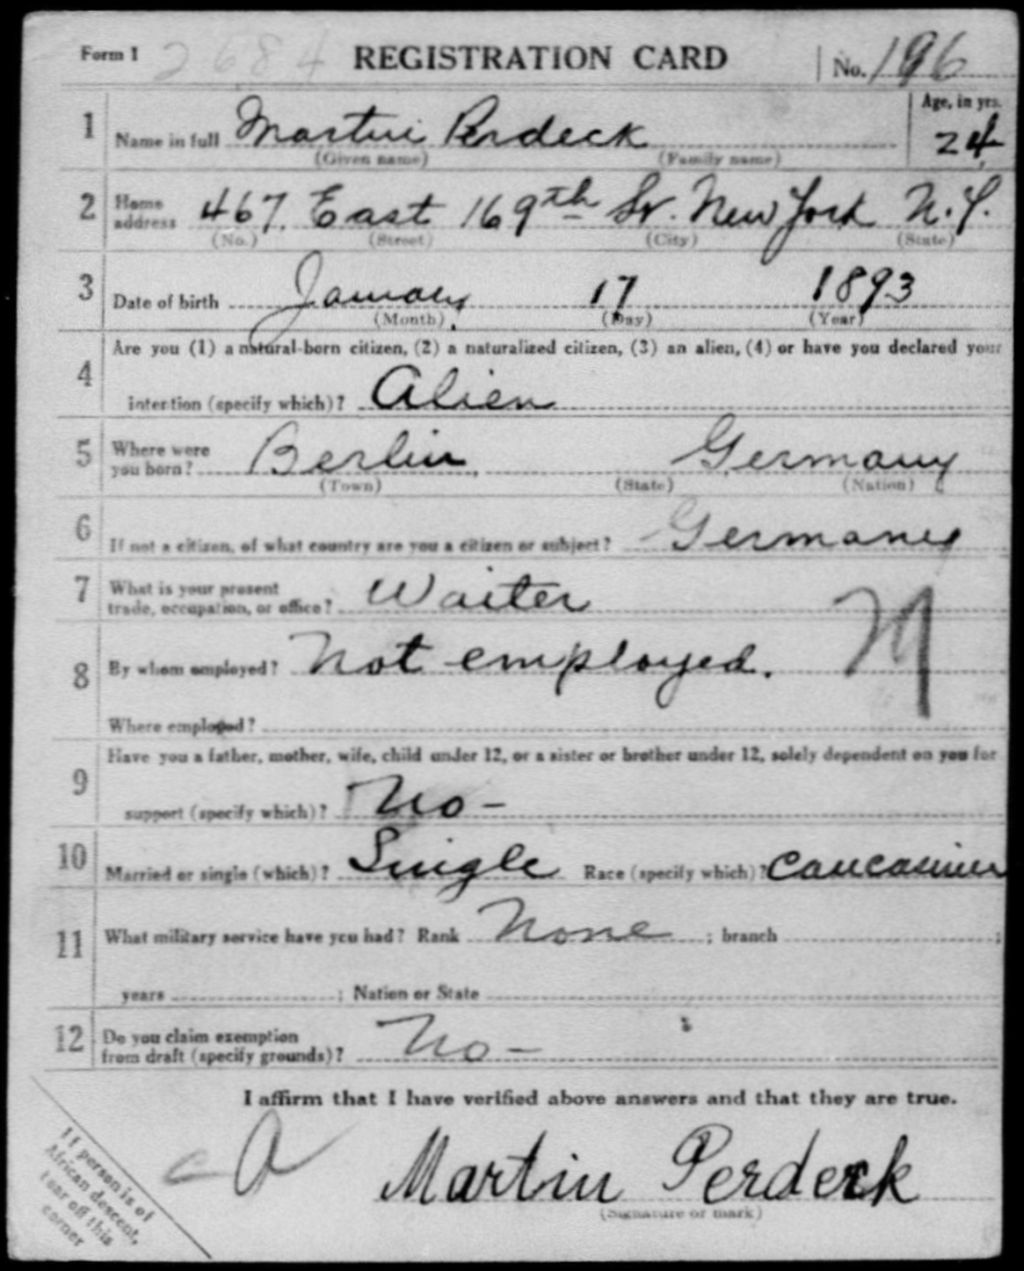 Form 1 2684 REGISTRATION CARD No. 196
1 Name in full Martin Perdeck Age, in yrs.
(Given name) (Family name) 24
2 Home address 467 East 169th St. New York N.Y.
(No.) (Street) (City) (State)
3 Date of birth January 17 1893
(Month) (Day) (Year)
Are you (1) a natural-born citizen, (2) a naturalized citizen, (3) an alien, (4) or have you declared your
4 intention (specify which)? Alien
5 Where were you born? Berlin, Germany
(Town) (State) (Nation)
6 If not a citizen, of what country are you a citizen or subject? Germany
7 What is your present trade, occupation, or office? Waiter
M
8 By whom employed? Not employed.
Where employed?
Have you a father, mother, wife, child under 12, or a sister or brother under 12, solely dependent on you for
9 support (specify which)? No -
10 Married or single (which)? Single Race (specify which)? Caucasian
11 What military service have you had? Rank None ; branch ;
years ; Nation or State
12 Do you claim exemption from draft (specify grounds)? No -
I affirm that I have verified above answers and that they are true.
Martin Perdeck
(Signature or mark)
If person is of
African descent,
tear off this
corner